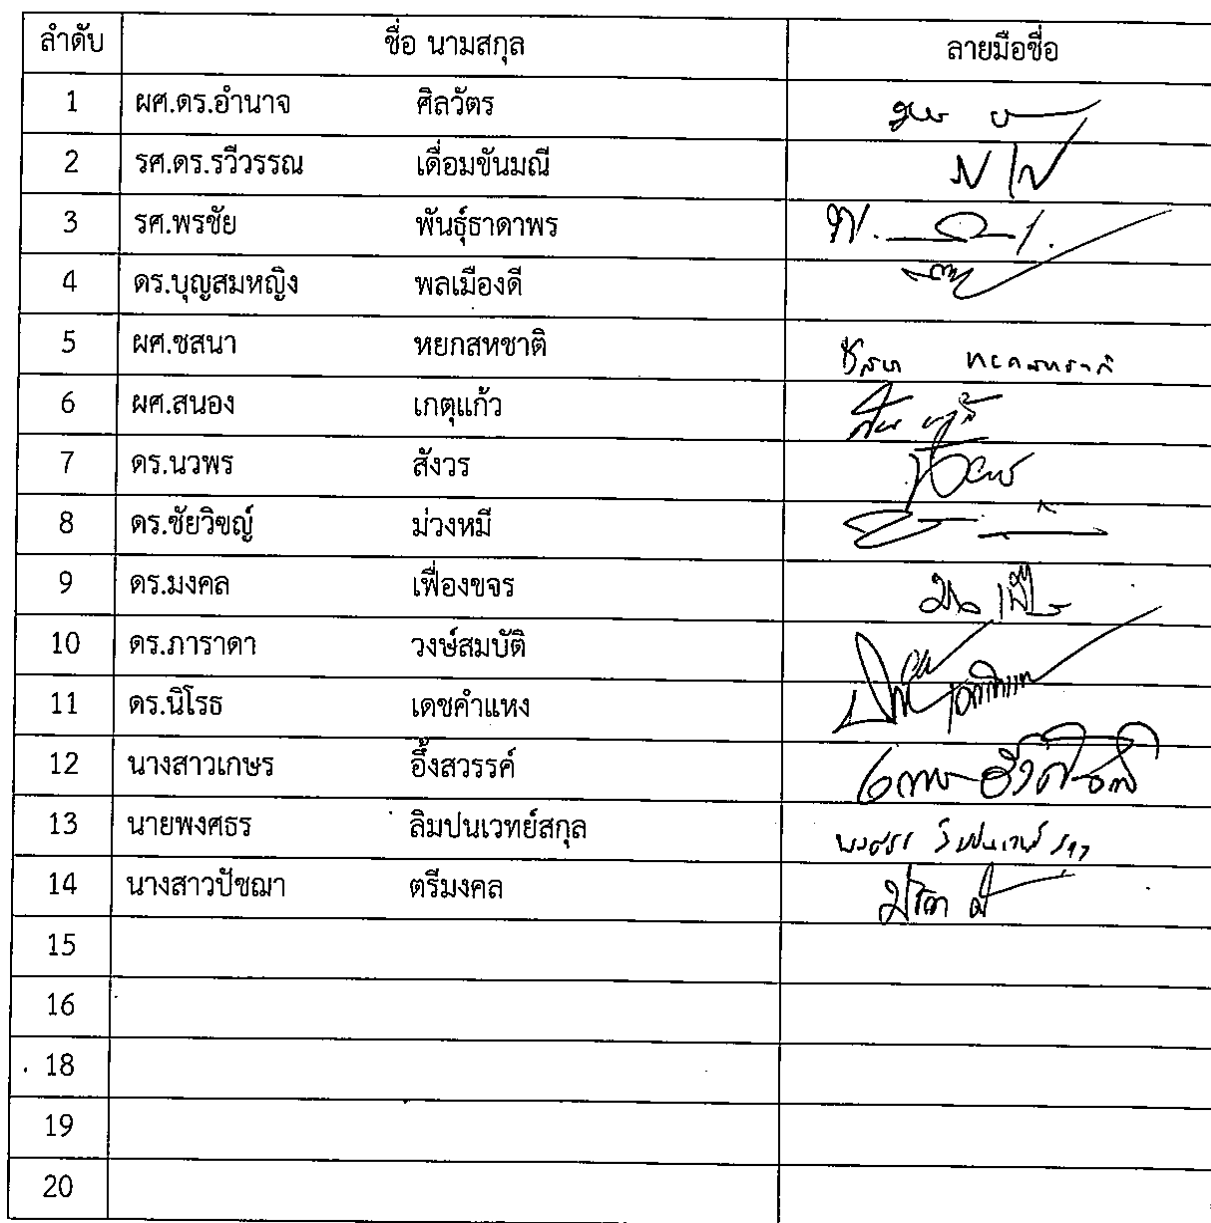 ลำดับ ชื่อ นามสกุล ลายมือชื่อ
1 ผศ.ดร.อำนาจ ศิลวัตร
2 รศ.ดร.รวีวรรณ เดื่อมขันมณี
3 รศ.พรชัย พันธุ์ธาดาพร
4 ดร.บุญสมหญิง พลเมืองดี
5 ผศ.ชสนา หยกสหชาติ
6 ผศ.สนอง เกตุแก้ว
7 ดร.นวพร สังวร
8 ดร.ชัยวิชญ์ ม่วงหมี
9 ดร.มงคล เฟื่องขจร
10 ดร.ภาราดา วงษ์สมบัติ
11 ดร.นิโรธ เดชคำแหง
12 นางสาวเกษร อึ๊งสวรรค์
13 นายพงศธร ลิมปนเวทย์สกุล
14 นางสาวปัชฌา ตรีมงคล
15
16
18
19
20